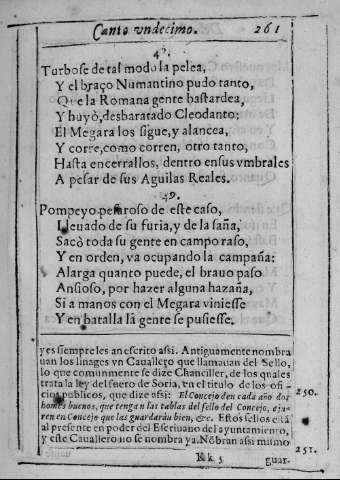 Canto vndecimo. 261
48.
Turbose de tal modo la pelea,
Y el braço Numantino pudo tanto,
Que la Romana gente bastardea,
Y huyò, desbaratado Cleodanto:
El Megara los sigue, y alancea,
Y corre, como corren, otro tanto,
Hasta encerrallos, dentro ensus vmbrales
A pesar de sus Aguilas Reales.
49.
Pompeyo pesaroso de este caso,
Lleuado de su furia, y de la saña,
Sacò toda su gente en campo raso,
Y en orden, va ocupando la campaña:
Alarga quanto puede, el brauo paso
Ansioso, por hazer alguna hazaña,
Si a manos con el Megara viniesse
Y en batalla la gente se pusiesse.
y es siempre les an escrito assi. Antiguamente nombra
uan los linages vn Cauallero que llamauan del Sello,
lo que comunmente se dize Chanciller, de los quales
trata la ley del fuero de Soria, en el titulo de los ofi-
cios publicos, que dize assi: El Concejo den cada año dos 250.
homes buenos, que tengan las tablas del sello del Concejo, e ju-
ren en Concejo que las guardaràn bien, &c. Estos sellos està
al presente en poder del Escriuano del ayuntamiento,
y este Cauallero no se nombra ya. Nōbran assi mismo
251.
Kk 5 guar.